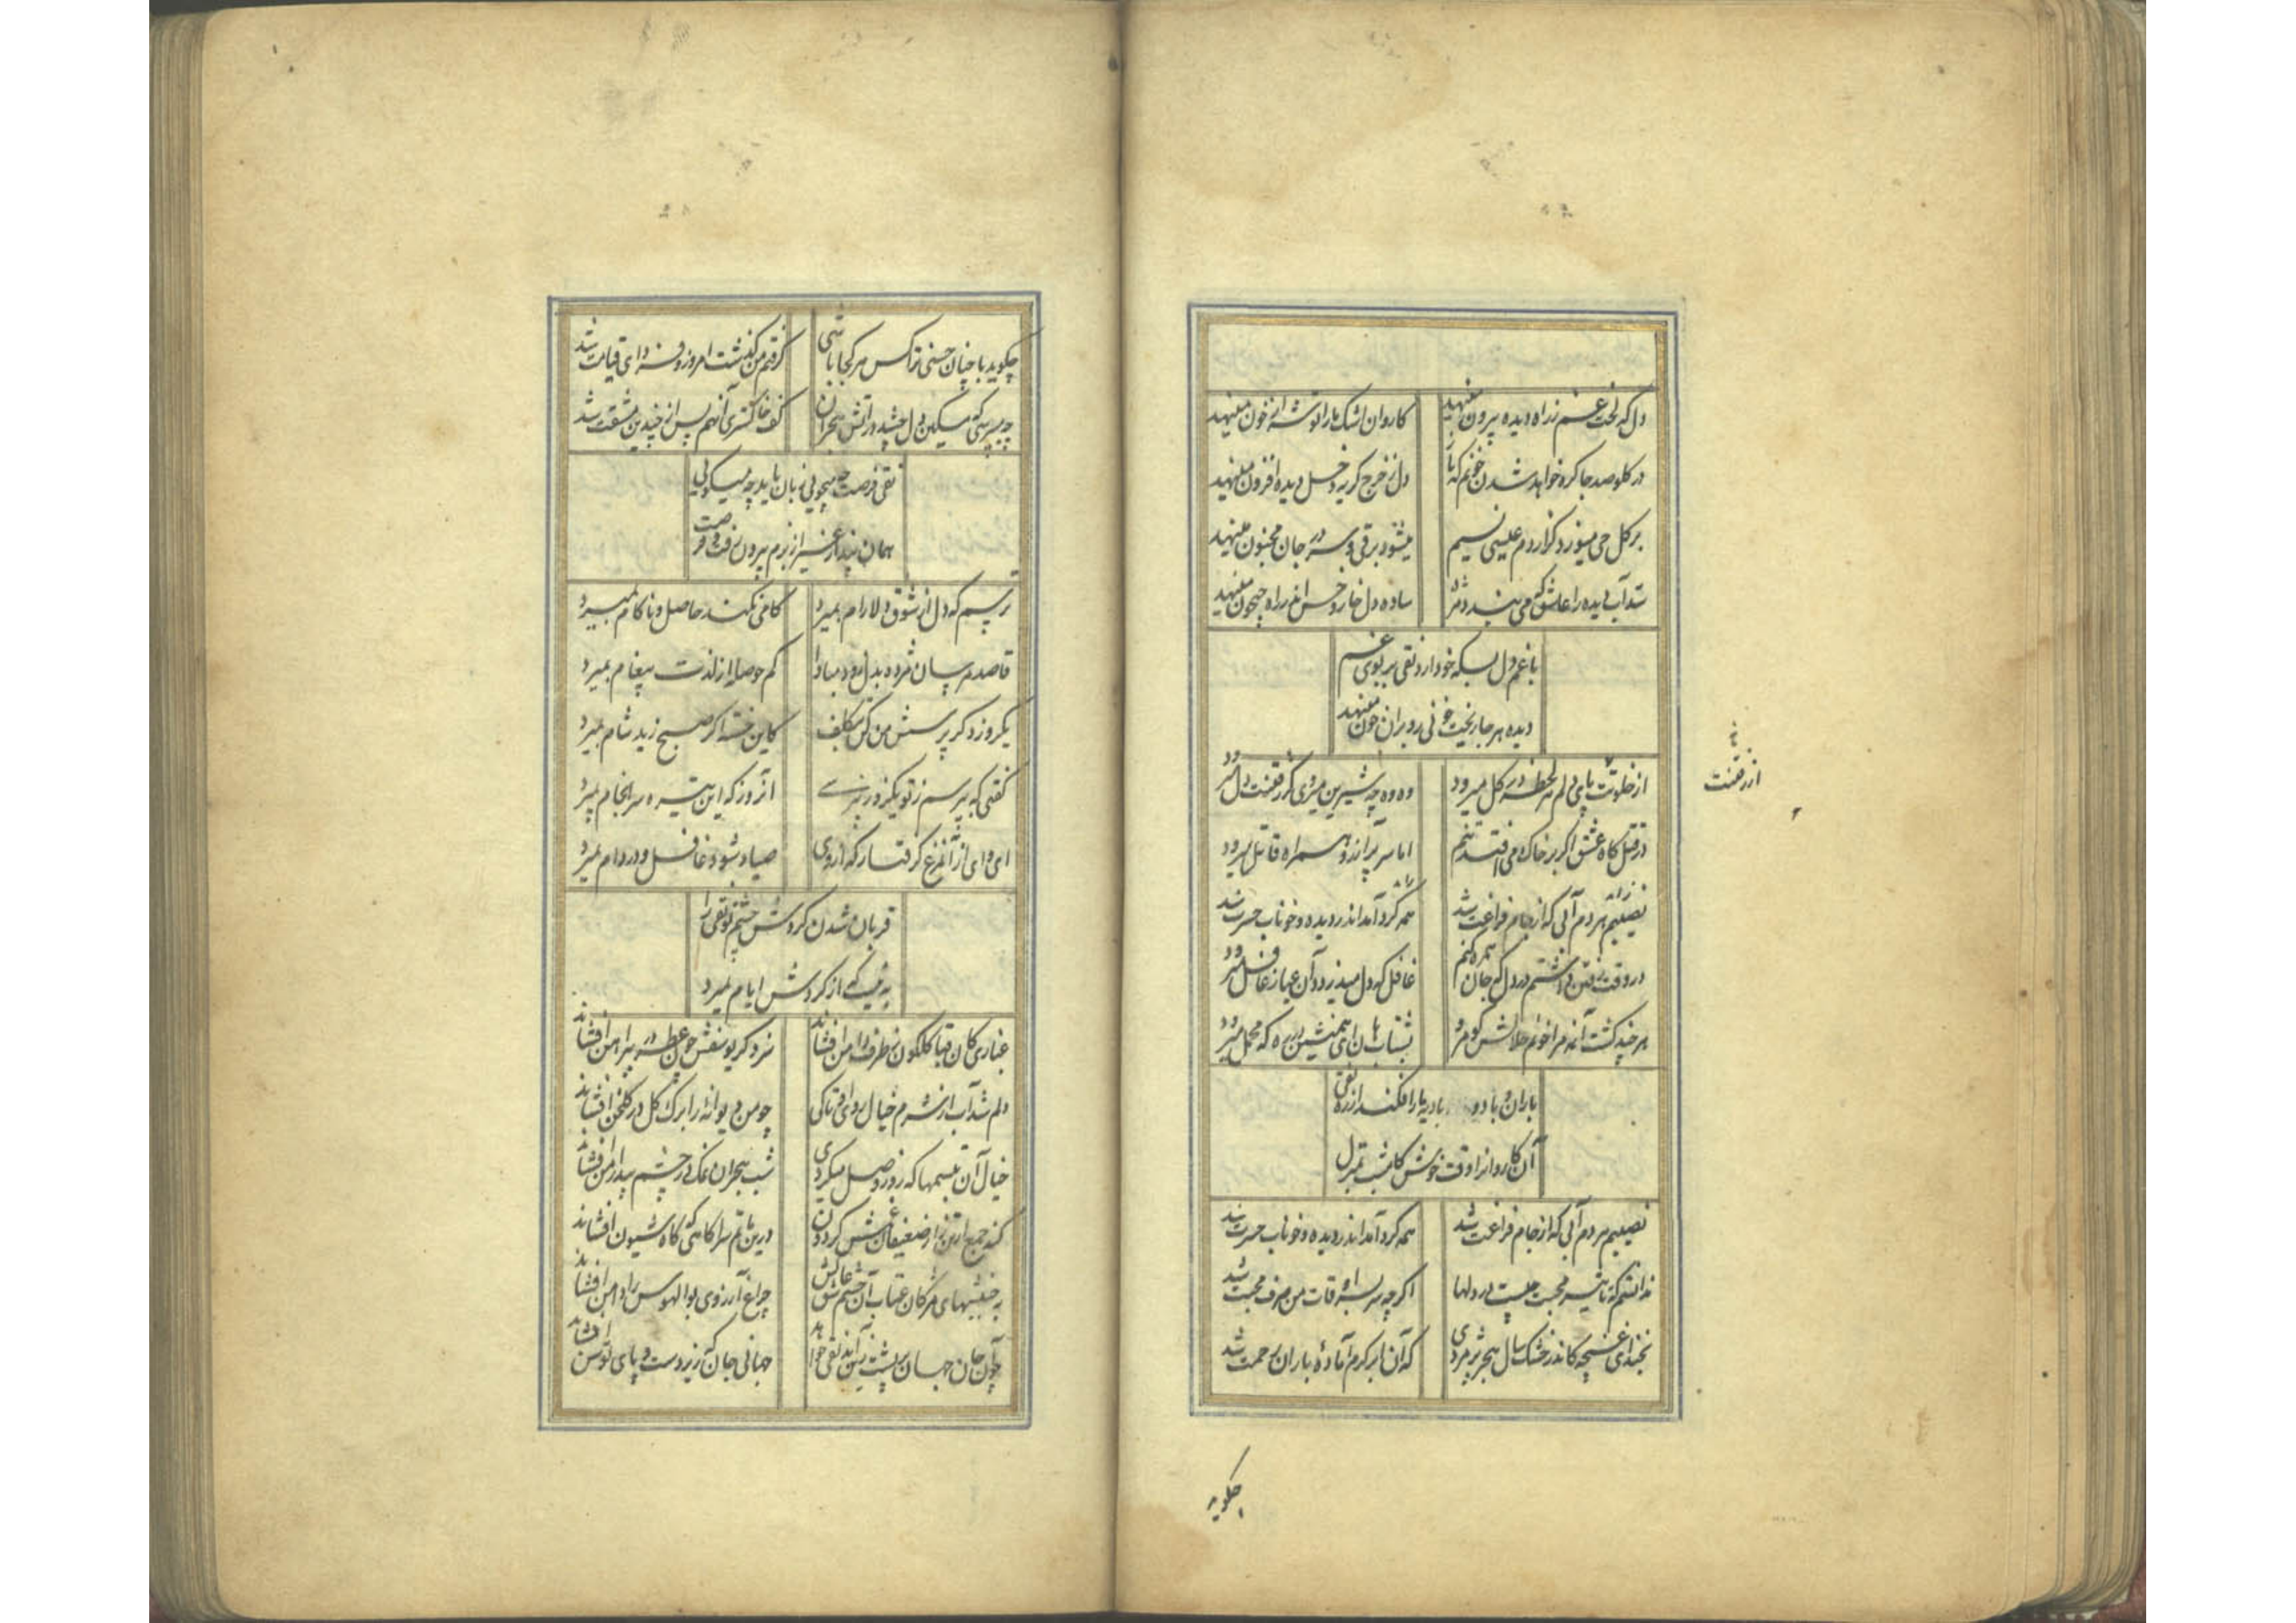 دل که لخت غم ز راه دیده بیرون مینهد
کاروان اشک ما را توشه از خون مینهد
در کلو صد جا کره خواهد شدن خونم که باز
دل ز خرج کریه دخل دیده افزون مینهد
بر کل حی میوزد کر از دم عیسی نسیم
میشود برقی و سر در جان مجنون مینهد
شد آب دیده را عاشق که می بندد مژه
ساده دل خار و خس اندر راه جیحون مینهد
با غم دل بسکه خو دارد نقی بر بوی غم
دیده هر جا ریخت خونی رو بر آن خون مینهد
از خلوتت پای دلم هر لحظه در کل میرود
وه وه چه شیرین میروی کز رفتنت دل میرود
در قتل کاه عشق اکر بر خاک می افتد تنم
اما سر پر آرزو همراه قاتل میرود
نصیبم هر دم آبی که از جام فراغت شد
همه کرد آمد اندر دیده و خوناب حسرت شد
در وقت رفتن داشتم در دل که جان همره کنم
غافل که دل میدزدد و آن عیار غافل میرود
هر چند کشت آنمه مرا خونم حلالش کو مرو
بشتاب هان ای همنشین بر ره که محمل میرود
باران و باد و بادیه بار افکند از ره نقی
آن کاروانرا وقت خوش کامشب بمنزل
نصیبم هر دم آبی که از جام فراغت شد
همه کرد آمد اندر دیده و خوناب حسرت شد
ندانستم که تاثیر محبت چیست در دلها
اکر چه سر بسر اوقات من صرف محبت شد
بخند ای غنچه کاندر خشک سال هجر پژمردی
که آن ابر کرم آمادهٔ باران رحمت شد
از رفتنت
چکوید
چکوید با چنان حسنی ترا کس هر کجا باشی
کرفتم من کذشت امروز و فردای قیامت شد
چه میپرسی که مسکین دل چشید در آتش هجران
کف خاکستری آنهم پس از چندین مشقت شد
نقی فرصت چه میجویی زبان باید چه میکویی
همان پندار غیر از بزم بیرون رفت و فرصت
ترسم که دل از شوق دلارام بمیرد
کامی نکند حاصل و ناکام بمیرد
قاصد مرسان مژده بدل زود مبادا
کم حوصله از لذت پیغام بمیرد
یکروز دکر پرسش من کن بتکلف
کاین خسته اکر صبح زید شام بمیرد
کفتی که بپرسم ز تو یکروز نپرسی
آنروز که این تیره سرانجام بمیرد
ای وای از آن مرغ کرفتار که از وی
صیاد شود غافل و در دام بمیرد
قربان شدن کردش چشم تو نقی را
به نیست که از کردش ایام بمیرد
غباری کان قبا کلکون ز طرف دامن افشاند
سزد کر یوسفش چون عطر در پیراهن افشاند
دلم شد آب از شرم خیال روی او تا کی
چو من دیوانهٔ را برک کل در کلخن افشاند
خیال آن تبسمها که روز وصل میکردی
شب هجران نمک در چشم بیدار من افشاند
کند جمع از تن زار ضعیفان شش کردون
درین ماتم سرا کاهی که کاه شیون افشاند
به جنبشهای مژکان عتاب آن چشم بر عاشق
چراغ آرزوی بوالهوس را دامن افشاند
چو آن جان جهان بر پشت زین آید نقی خواهد
جهانی جان که زیر دست و پای توسن افشاند